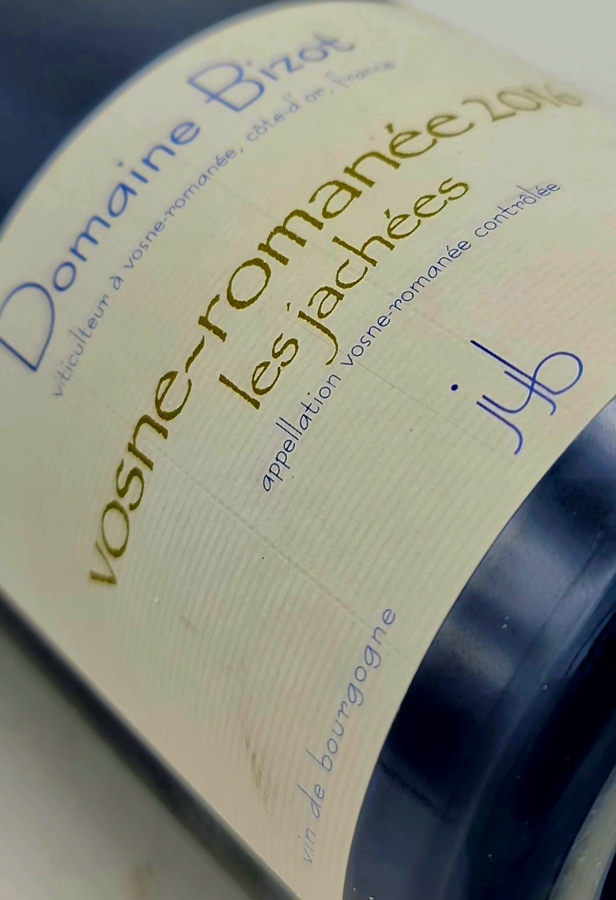 Domaine Bizot
viticulteur à vosne-romanée, côte-d'or, france
vosne-romanée 2016
les jachées
appellation vosne-romanée contrôlée
jyb
vin de bourgogne